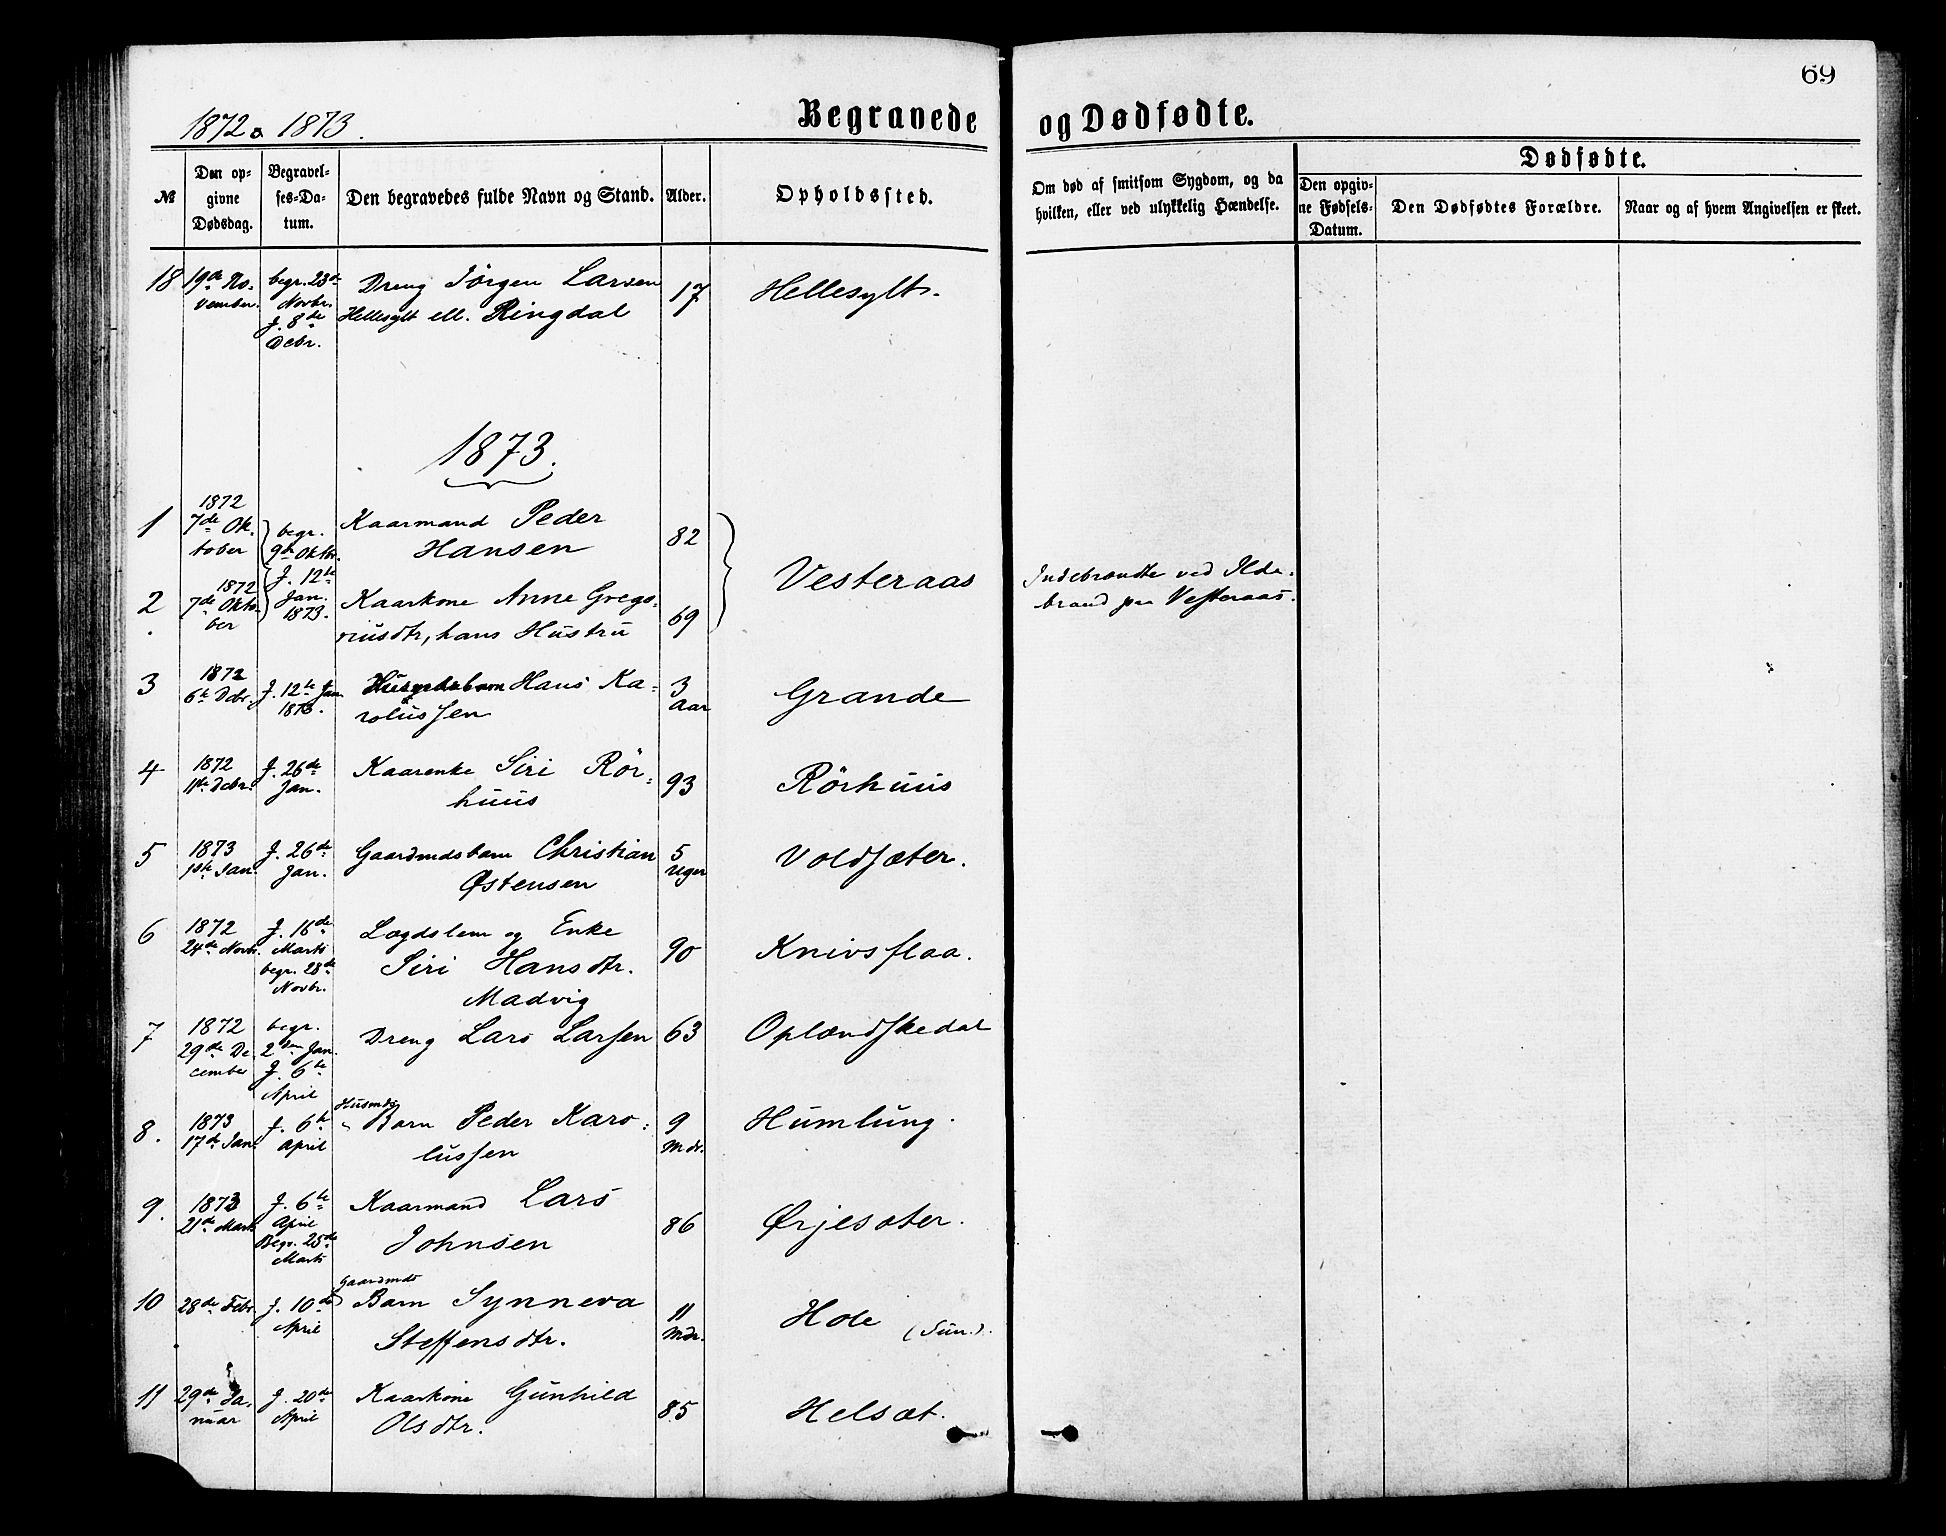 69
1872 & 1873.
Begravede og Dødfødte.
№
Den op-
givne
Dødsdag.
Begravel-
ses-Da-
tum.
Den begravedes fulde Navn og Stand.
Alder.
Opholdssted.
Om død af smitsom Sygdom, og da
hvilken, eller ved ulykkelig Hændelse.
Dødfødte.
Den opgiv-
ne Fødsels-
Datum.
Den Dødfødtes Forældre.
Naar og af hvem Angivelsen er skeet.
18
19de No-
vember.
begr. 23de
Novbr.
J. 8de
Debr.
Dreng Jörgen Larsen
Hellesylt ell. Ringdal
17
Hellesylt.
1873.
1
1872
7de Ok-
tober
begr.
9de Oktbr.
J. 12te
Jan.
1873.
Kaarmand Peder
Hansen
82
Vesteraas
Indebrændte ved Ilde-
brand paa Vesteraas.
2
1872
7de Okto-
ber
Kaarkone Anne Grego-
riusdtr, hans Hustru
69
3
1872
6te Debr.
J. 12te Jan
1873.
Hans Ka-
rolussen
3
Aar
Grande
4
1872
11te Debr.
J. 26de
Jan.
Kaarenke Siri Rör-
huus
93
Rörhuus
5
1873
1ste Jan.
J. 26de
Jan.
Gaardmdsbarn Christian
Østensen
5
Uger
Voldsæter.
6
1872
24de Novbr.
J. 16de
Marts
begr. 28de
Novbr.
Lægdslem og Enke
Siri Hansdtr.
Madvig
90
Knivsflaa.
7
1872
29de De-
cember
begr.
2den Jan.
J. 6te
April
Dreng Lars Larsen
63
Oplændskedal
8.
1873
17de Jan.
J. 6te
April
Husmds
Barn Peder Karo-
lussen
9
Mdr.
Humlung.
9.
1873
21de Marts
J. 6te
April
Begr. 25de
Marts
Kaarmand Lars
Johnsen
86
Ørjesæter.
10
28de Febr.
J. 10de
April
Gaardmds
Barn Synneva
Steffensdtr.
11
Mdr.
Hole (Sun.).
11
29de Ja-
nuar
J. 20de
April
Kaarkone Gunhild
Olsdtr.
85
Helsæt.